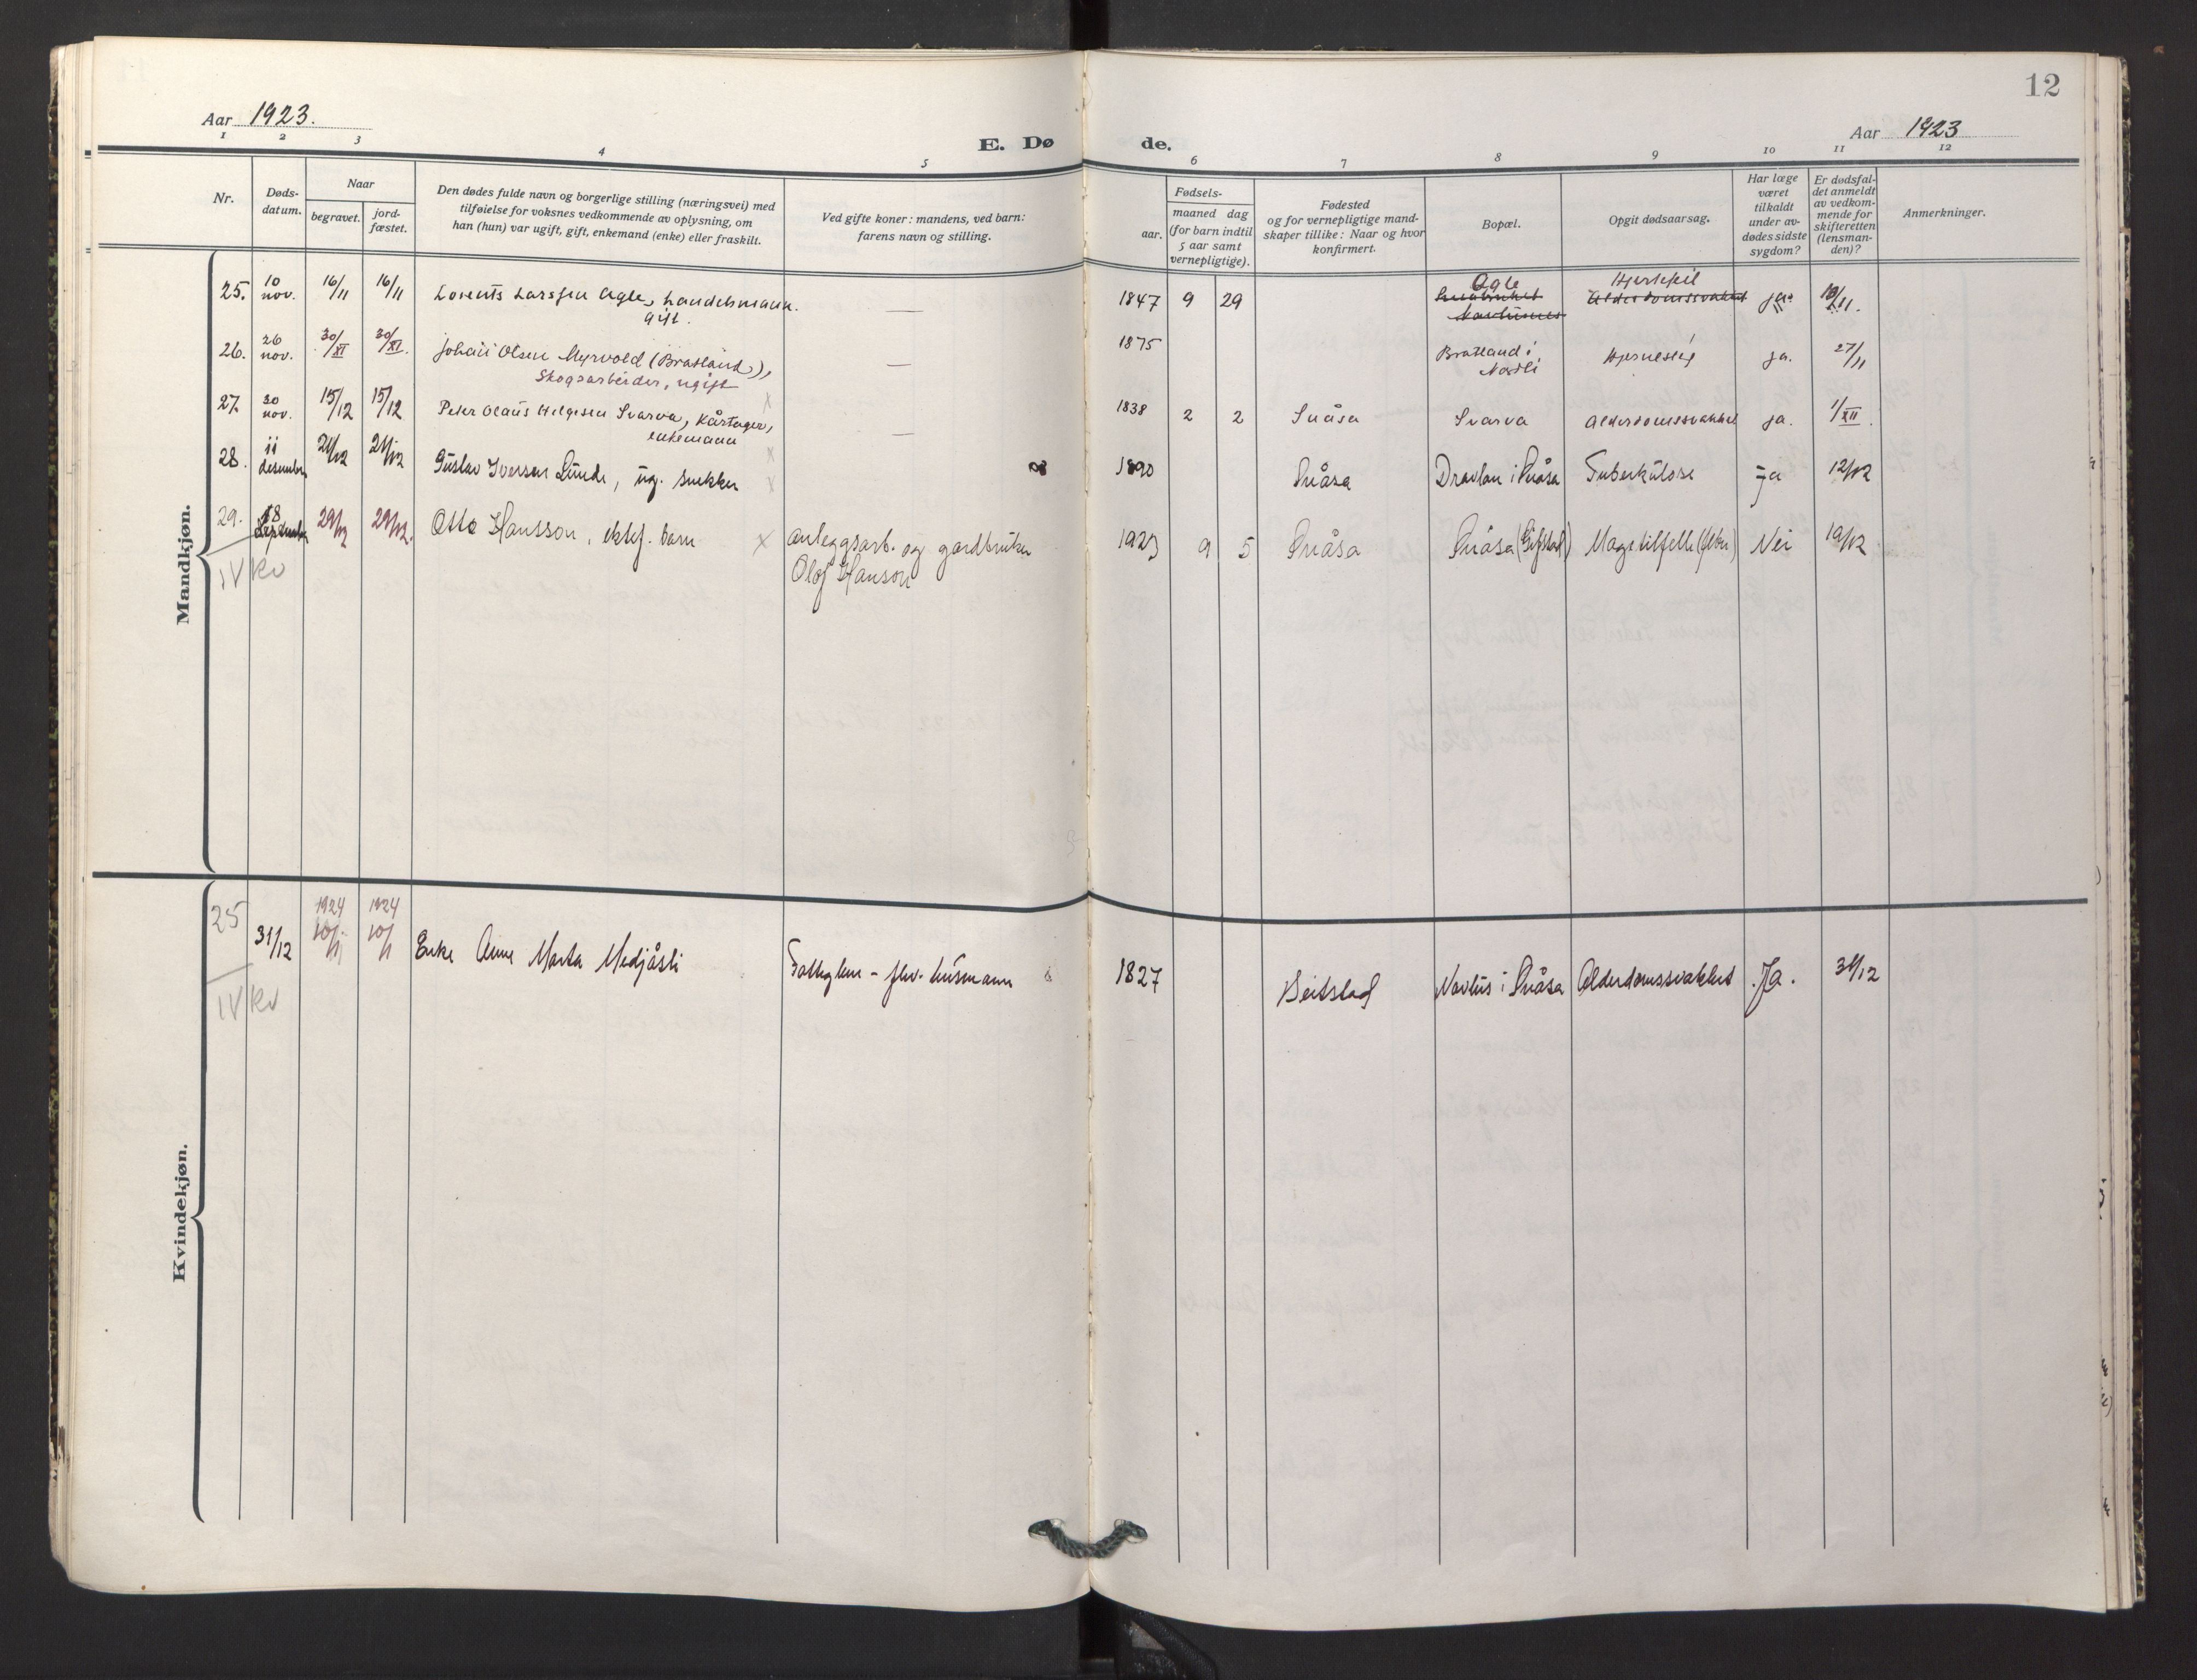 12
Aar 1923.
Aar 1923
E. Dø de.
1 2 3 4 5 6 7 8 9 10 11 12
Nr.
Døds-
datum.
Naar
begravet.
jord-
fæstet.
Den dødes fulde navn og borgerlige stilling (næringsvei) med
tilføielse for voksnes vedkommende av oplysning, om
han (hun) var ugift, gift, enkemand (enke) eller fraskilt.
Ved gifte koner: mandens, ved barn:
farens navn og stilling.
Fødsels-
aar.
maaned dag
(for barn indtil
5 aar samt
vernepligtige).
Fødested
og for vernepligtige mand-
skaper tillike: Naar og hvor
konfirmert.
Bopæl.
Opgit dødsaarsag.
Har læge
været
tilkaldt
under av-
dødes sidste
sygdom?
Er dødsfal-
det anmeldt
av vedkom-
mende for
skifteretten
(lensman-
den)?
Anmerkninger.
Mandkjøn.
25. 10 nov. 16/11 16/11 Lorents Larssen Agle, Handelsmann. — 1847 9 29 Agle Hjertefeil ja. 10/11.
gift. Alderdomssvakhet
26. 26 nov. 30/XI 30/XI. Johan Olsen Myrvold (Bratland), — 1875 Bratland i Hjerneslag ja. 27/11
Skogsarbeider, ugift Nordli
27. 30 nov. 15/12 15/12 Peter Olaus Helgesen Svarva, Kårtager, — 1838 2 2 Snåsa Svarva Alderdomssvakhet ja. 1/XII.
enkemann
28. 11 desember 21/12 21/12 Gustav Iversen Lunde, ug. snekker 1890 Snåsa Dravlan i Snåsa Tuberkulose Ja 12/12
29. 18 desember 29/12 29/12. Otto Hansson, ektef. barn x Anleggsarb. og gardbruker 1923 9 5 Snåsa Snåsa (Gifstad) Magetilfelle Nei 19/12
IV Kv Olof Hanson
Kvindekjøn.
25 1924 1924
31/12 10/1 10/1 Enke Anne Marta Medjåsli Fatteglem - fhv. husmann 1827 Beitstad Navlus i Snåsa Alderdomssvakhet Ja. 31/12
IV Kv